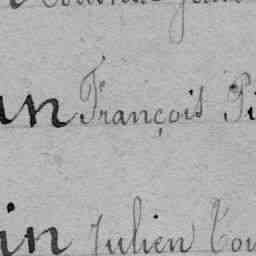 an François Pi
in Julien Cou